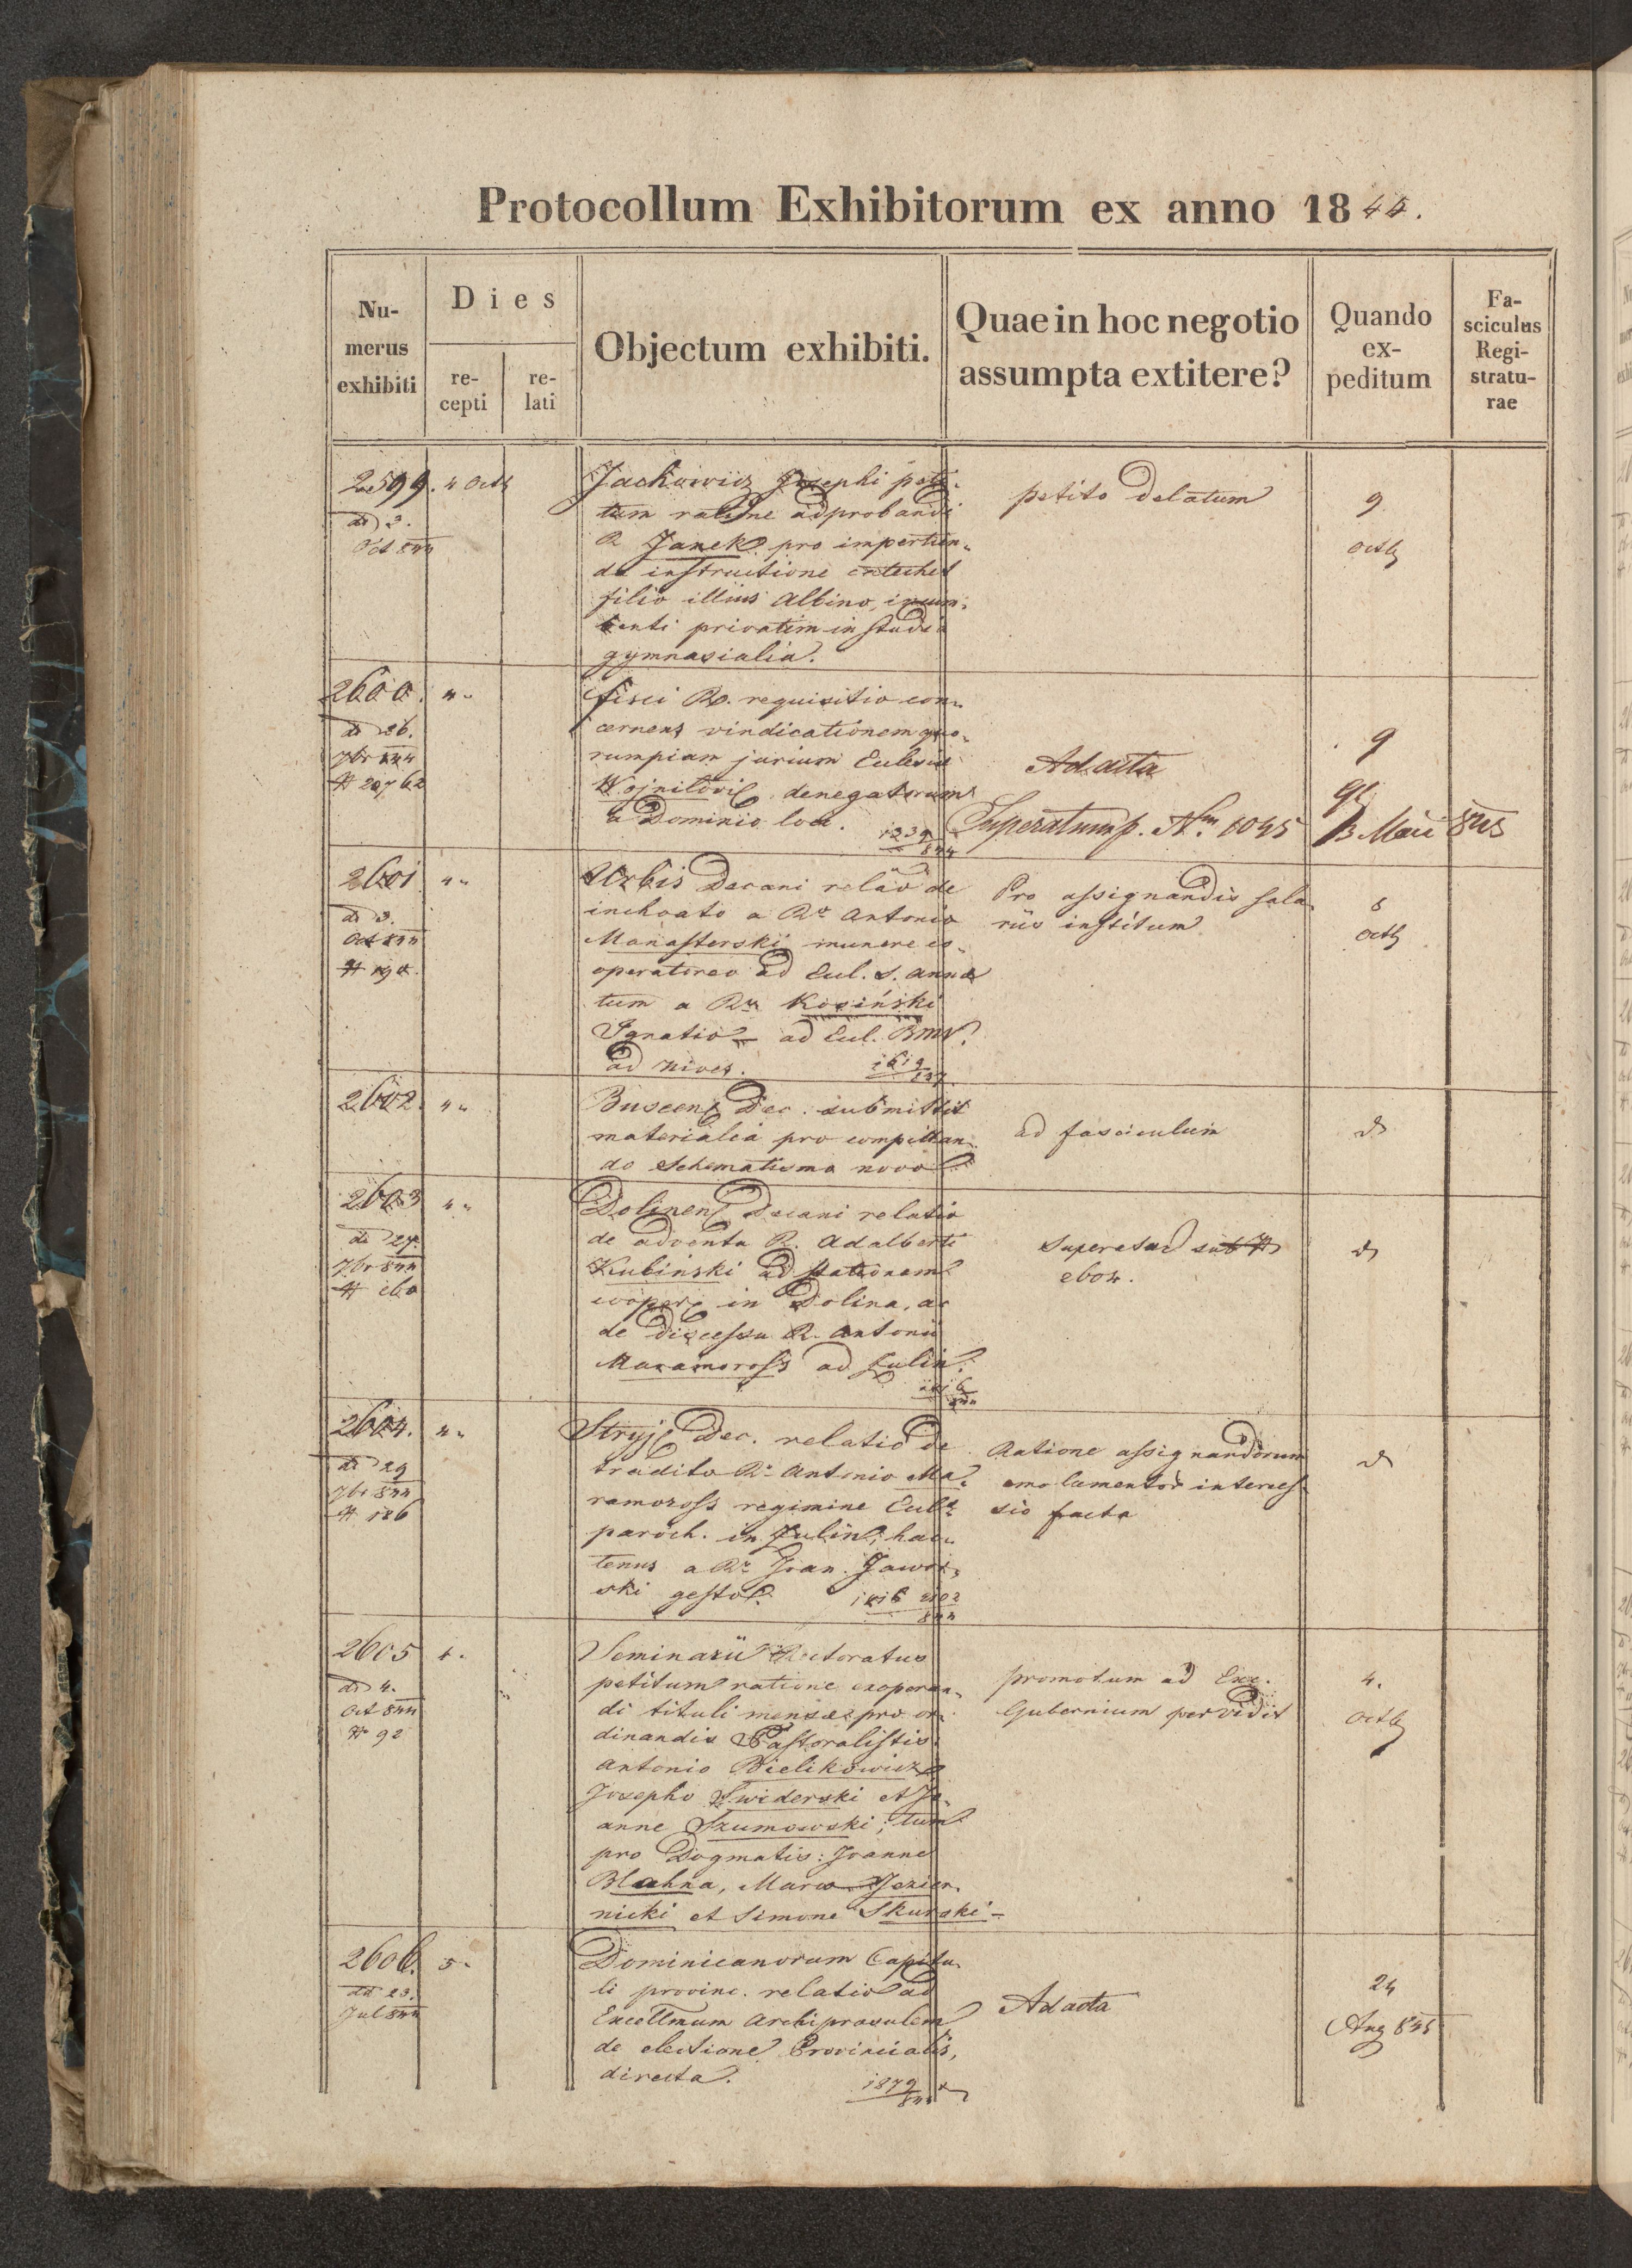 Protocollum Exhibitorum ex anno 1844.
Numerus exhibiti
Dies
recepti
relati
Objectum exhibiti.
Quae in hoc negotio assumpta extitere?
Quando expeditum
Fasciculus Registraturae
2599. 4 Octb
dd 3.
Oct 844
Jachowicz Josephi peti-
tum ratione adprobandi
R Janek pro impertien-
da instructione catechet
filio illius Albino, incum-
benti privatim in studia
gymnasialia.
petito delatum
9
octb
2600. 4"
dd 26.
7br 844
# 20762
fisci R. requisitio con-
cernens vindicationem quo-
rumpiam jurium Eccles
Wojnilovi denegatorum
a Dominio loci. 1239/844
Ad acta
Superatum p. Num 1045
9
13 Maii 845
2601 4"
dd 3.
Oct 844
# 194.
Urbis Decani relao de
inchoato a Ro Antonio
Manasterski munere co-
operatoreo ad Eccl. S. Annae
tum a Ro Kosiński
Ignatio ad Eccl. BMV.
ad nives. 1619
Pro assignandis sala-
riis institum
8
octb
2602. 4"
Buscens Dec. submittit
materialia pro compillan-
do Schematismo novo
ad fasciculum
2603 4"
dd 27.
7br 844
# 160
Dolinens Decani relatio
de adventu R. Adalberti
Kubinski ad stationem
cooper in Dolina, ac
de discessu R. Antonii
Maramoross ad Julin.
Superatur sub #
2604.
2604. 4"
dd 29
7br 844
# 186
Stryj Dec. relatio de
tradito Ro Antonio Ma-
ramoross regimine Eccl
paroch. in Julin, hac-
tenus a Ro Joan. Jawor-
ski gesto. 1816 2102/844
Ratione assignandorum
emolumentor interces-
sio facta
2605 4.
dd 4.
Oct 844
# 92
Seminarii Rectoratus
petitum ratione exoperan-
di tituli mensae pro or-
dinandis Pastoralistis:
Antonio Bielikowicz
Josepho Swiderski et Jo-
anne Szumowski; tum
pro Dogmatis: Joanne
Blachna, Marco Jezier-
nicki et Simone Skurski -
promotum ad Exc.
Gubernium per vidit
4.
octb
2606. 5.
dd 23.
Jul 844
Dominicanorum Capitu-
li provinc. relatio ad
Excellmum Archipraesulem
de electione Provincialis,
directa. 1879/844
Ad acta
24
Aug 845